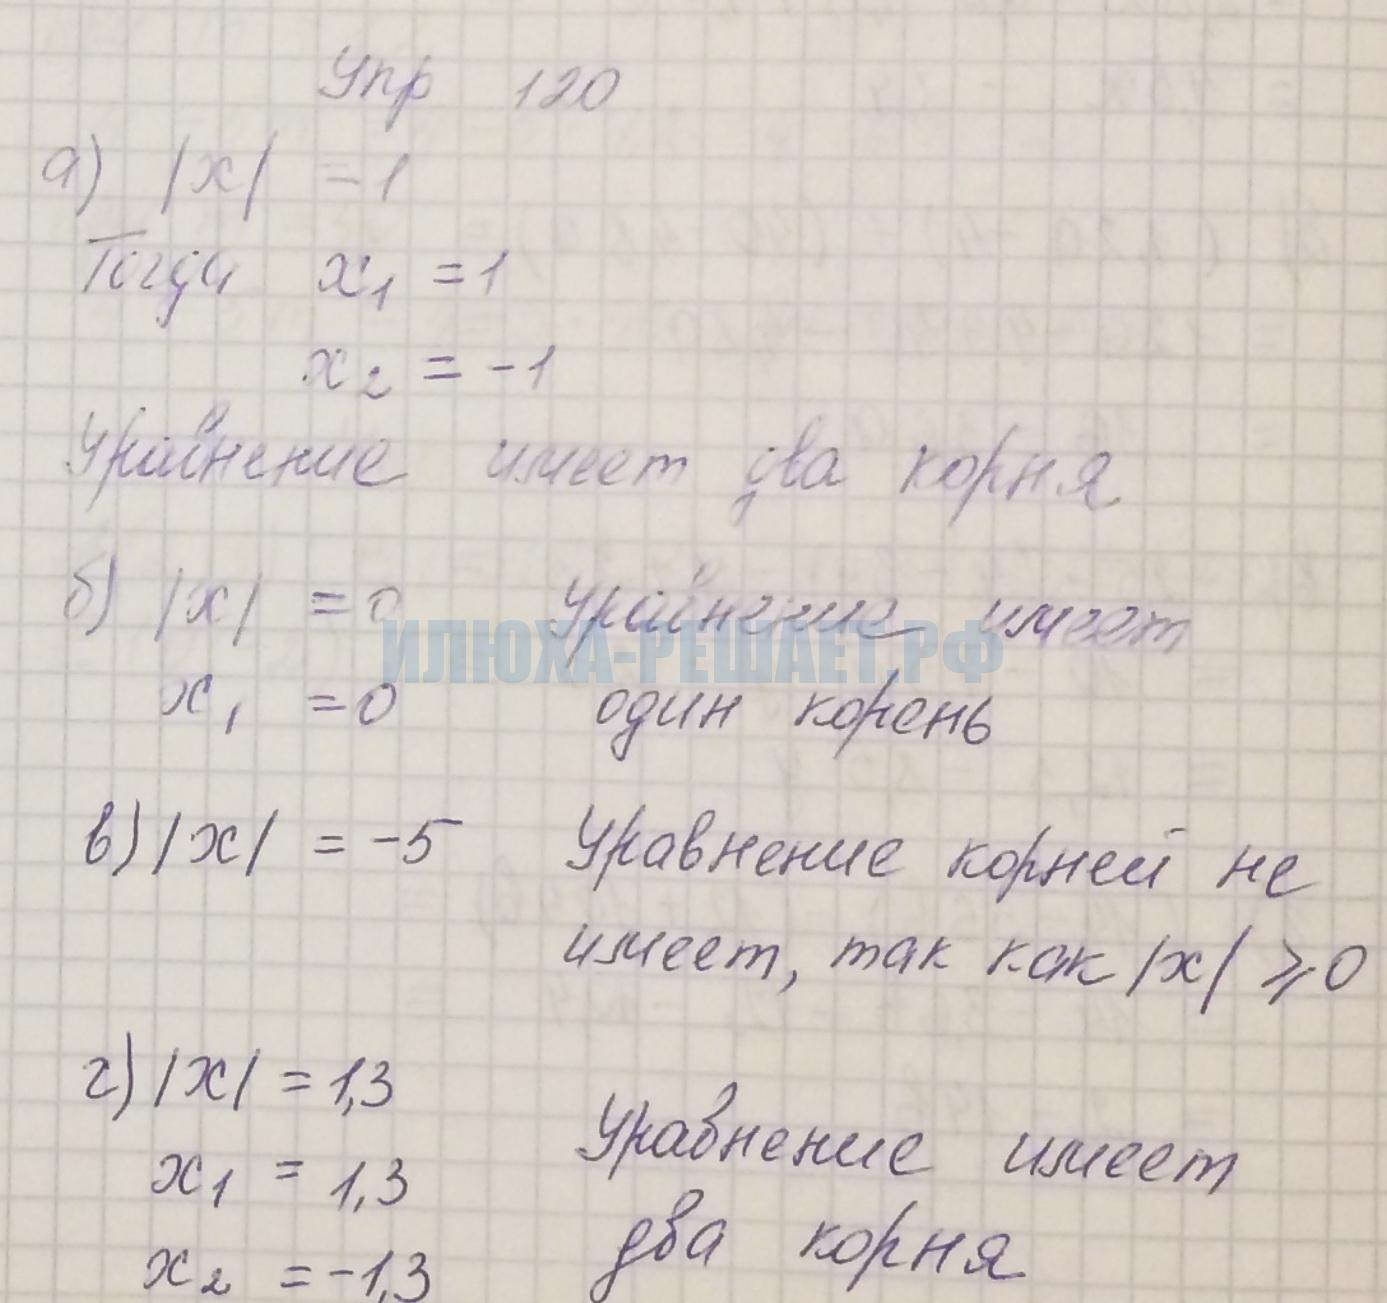 Упр 120
а) |x| = 1
Тогда x₁ = 1
x₂ = -1
Уравнение имеет два корня
б) |x| = 0 Уравнение имеет
ИЛЮХА-РЕШАЕТ.РФ
x₁ = 0 один корень
в) |x| = -5 Уравнение корней не
имеет, так как |x| ⩾ 0
г) |x| = 1,3
Уравнение имеет
x₁ = 1,3
два корня
x₂ = -1,3